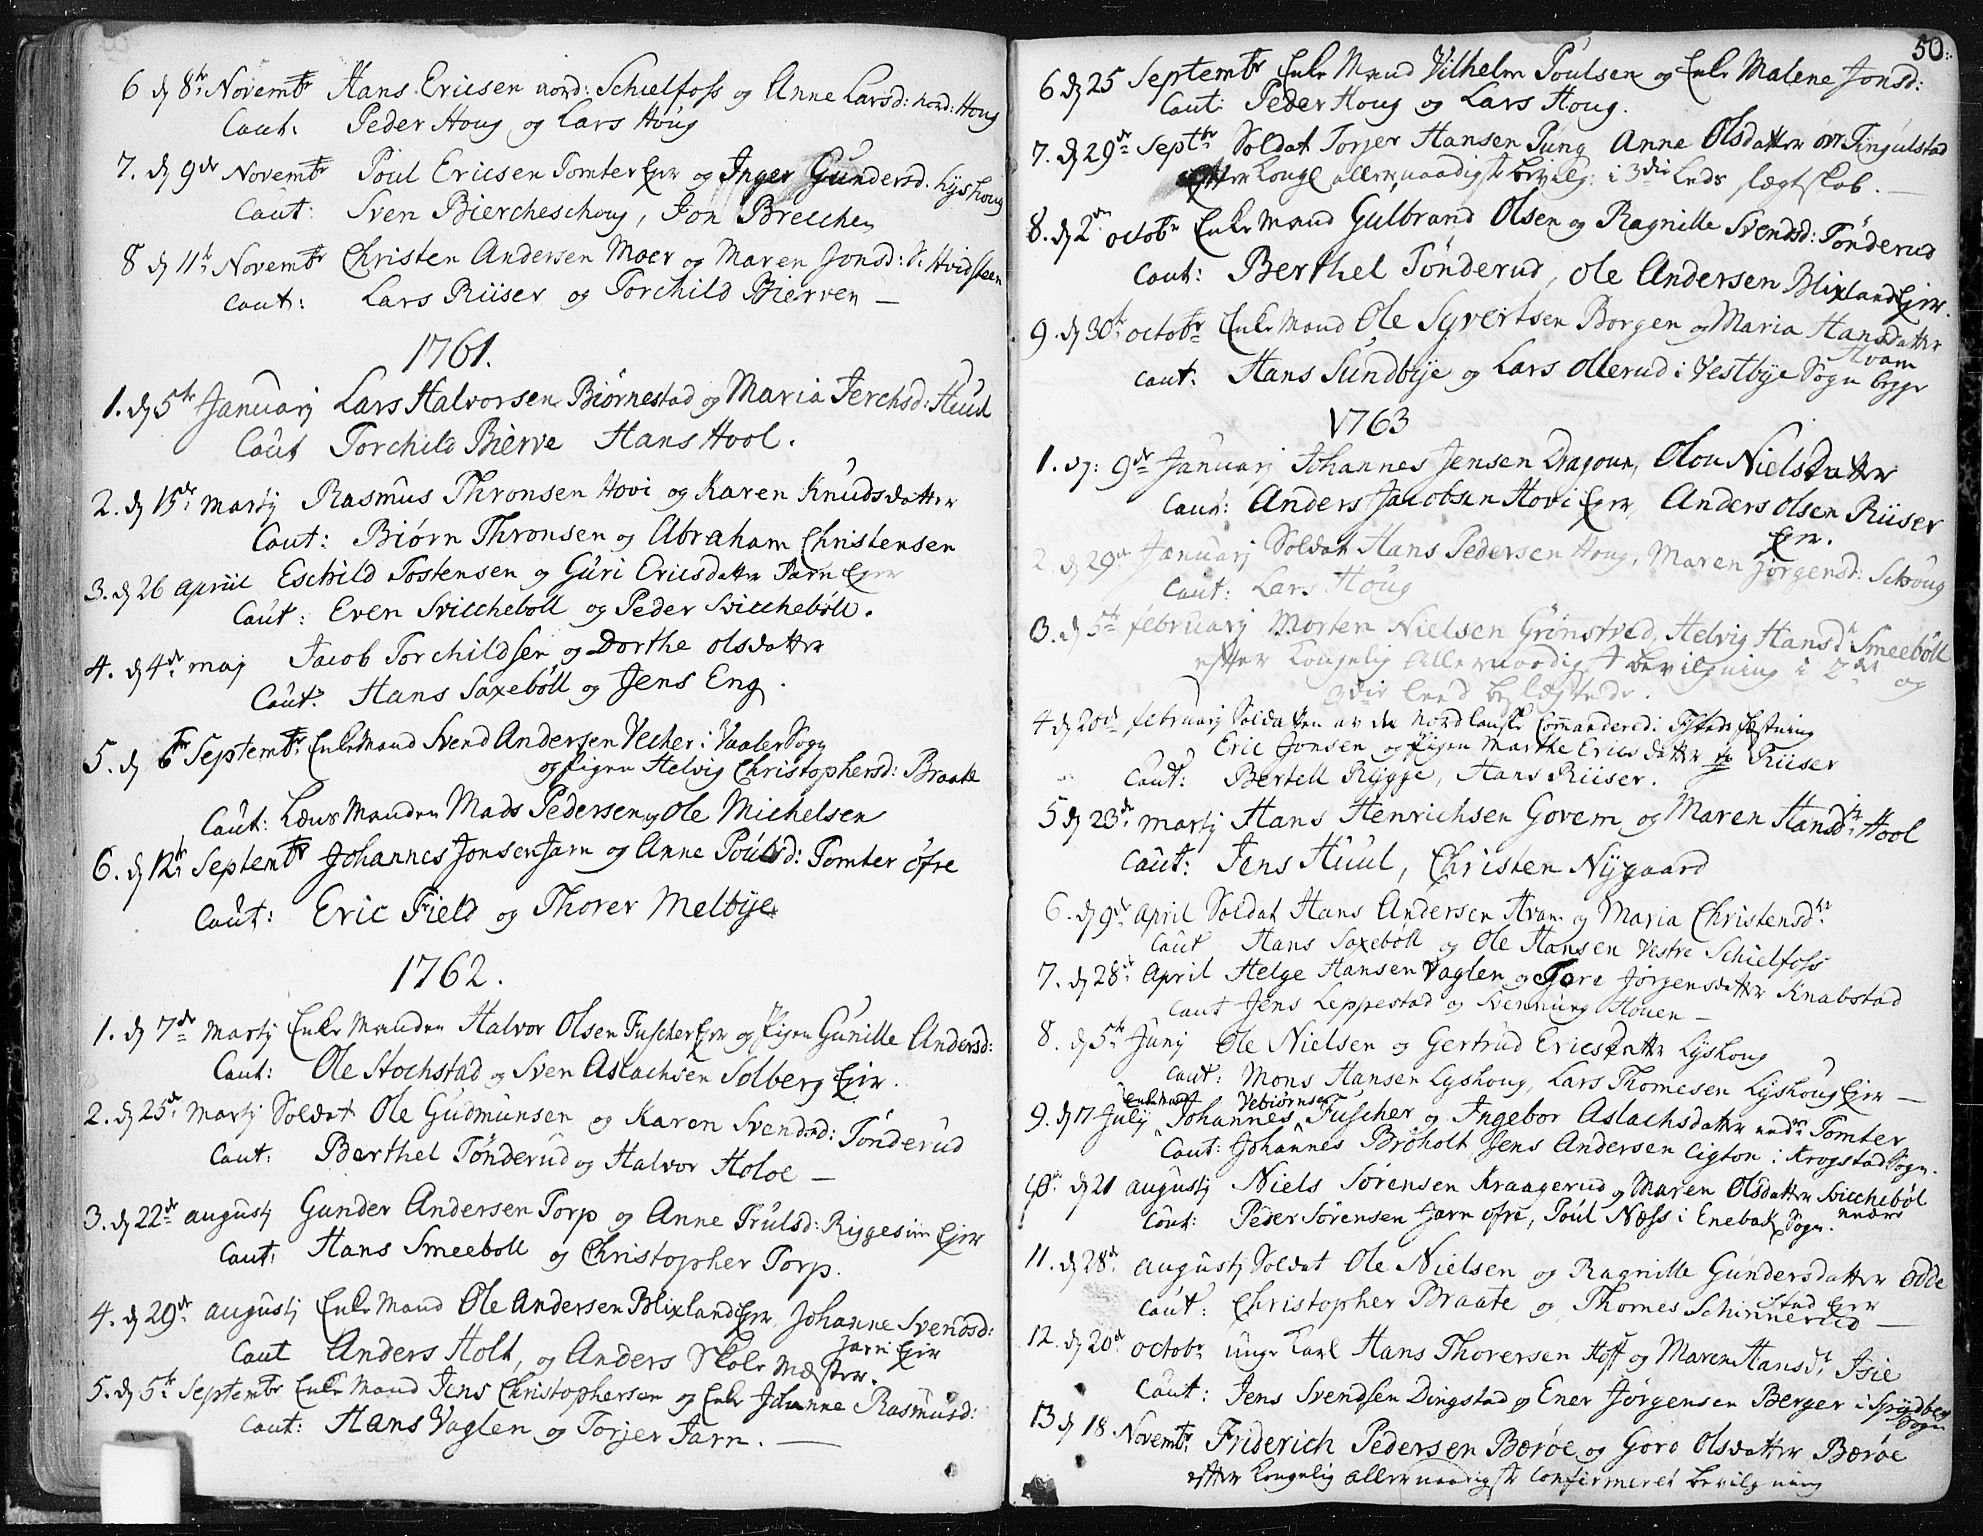 6 dj 8de Novembr Hans Ericsen nord: Schielfoss og Anne Larsd: nord: Houg
Caut: Peder Houg og Lars Houg
7. dj 9de Novembr Poul Ericsen Tomter Eier og Inger Gundersd. Lyshoug
Caut: Sven Biercheschoug, Jon Brecchen
8 dj 11te Novembr Christen Andersen Moer og Maren Jonsd: Hvidsteen
Caut: Lars Riiser og Torchild Bierven —
1761.
1. dj 5te Januarj Lars Halvorsen Biørnestad og Maria Jerchsd: Huul
Caut Torchild Bierve Hans Hool.
2. dj 15de Martj Rasmus Thronsen Hovi og Karen Knudsdatter
Caut: Biørn Thronsen og Abraham Christensen
3. dj 26 Apriil Eschild Tostensen og Guri Ericsdatter Jarn Eier
Caut: Even Svicchebøll og Peder Svicchebøll.
4. dj 4de Maj Jacob Torchildsen og Dorthe Olsdatter
Caut: Hans Saxebøll og Jens Eng.
5. dj 6te Septembr Enke Mand Svend Andersen Vecher i Vaaler Sogn
og Pigen Helvig Christophersd: Braate
Caut: Lænsmanden Mads Pedersen og Ole Michelsen
6. dj 12te Septembr Johannes Jonsen Jarn og Anne Poulsd: Tomter øfre
Caut: Eric Field og Thorer Melbye
1762.
1. dj 7de Martj Enke Manden Halvor Olsen Fuscher Eier og Pigen Gunille Andersd:
Caut: Ole Stochstad og Sven Aslachsen Solberg Eier.
2. dj 25de Martj Soldat Ole Gudmunsen og Karen Svendsd: Tønderud
Caut: Berthel Tønderud og Halvor Holøe —
3. dj 22de Augustj Gunder Andersen Torp og Anne Trulsd: Riggesiim Eier
Caut: Hans Smeebøll og Christopher Torp.
4. dj 29de Augustj Enke Mand Ole Andersen Blixland Eier, Johanne Svendsd:
Jarn Eier
Caut Anders Holt, og Anders Skole Mæster.
5. dj 5te Septembr Enke Mand Jens Christophersen og Enke Johanne Rasmusd:
Caut: Hans Vaglen og Torjer Jarn. —
50.
6 dj 25 Septembr Enke Mand Vilhelm Poulsen og Enke Malene Jonsd:
Caut: Peder Houg og Lars Houg.
7. dj 29de Septbr Soldat Torjer Hansen Pung Anne Olsdatter Tingulstad
Efter Kongl allernaadigste bevilg: i 3die Leds slægtskab. —
8. dj 2den Octobr Enke Mand Gulbrand Olsen og Ragnille Svendsd: Tønderud
Caut: Berthel Tønderud, Ole Andersen Blixland Eier.
9. dj 30te Octobr Enke Mand Ole Syvertsen Borgen og Maria Hansdatter
Hvam
Caut: Hans Sundbye og Lars Ollerud i Vestbye Sogn
1763
1. dj: 9de Januarj Johannes Jensen Dragoun, Olou Nielsdatter
Caut: Anders Jacobsen Hovi Eier, Anders Olsen Riiser
Eier.
2. dj 29de Januarj Soldat Hans Pedersen Houg, Maren Jørgensd: Schoug
Caut: Lars Houg
3. dj 5te Februarj Morten Nielsen Grønstved, Helvig Hansdtr Smeebøll
efter Kongelig Allernaadigst bevilgning i 2det og
3die leed beslægtede.
4 dj 20de Februarj Soldatten av de Nordlanske Commanderede i Fæstning
Eric Jonsen og Pigen Marthe Ericsdatter Riiser
Caut: Bertell Rygge, Hans Riiser.
5 dj 23de Martj Hans Henrichsen Govem og Maren Hansdtr Hool
Caut: Jens Huul, Christen Nygaard
6. dj 9de April Soldat Hans Andersen Hvam og Maria Christensdtr
Caut Hans Saxebøll og Ole Hansen Vestre Schielfoss
7. dj 28de April Helge Hansen Vaglen og Tore Jørgensdatter Knabstad
Caut Jens Leppestad og Svennung Houen —
8. dj 5te Junj Ole Nielsen og Gertrud Ericsdatter Lyshoug
Caut: Mons Hansen Lyshoug, Lars Thomesen Lyshoug Eier —
Enkemand Vebiørnsen
9. dj 17 July Johannes Fuscher og Ingebor Aslachsdatter nedre Tomter
Caut: Johannes Brøholt Jens Andersen Cigton i Krogstad Sogn.
10. dj 21 Augustj Niels Sørensen Kraagerud og Maren Olsdatter Svicchebøl
nædre
Caut: Peder Sørensen Jarn øfre, Poul Næss i Enebak Sogn.
11. dj 28de Augustj Soldat Ole Nielsen og Ragnille Gundersdatter Odde
stad Eier
Caut: Christopher Braate og Thomes Schinnerud —
12. dj 20de Octobr unge Karl Hans Thoversen Hoff og Maren Hansdtr Isie
Caut: Jens Svendsen Dingstad og Ener Jørgensen Berger i Spydberg
Sogn
13 dj 18 Novembr Friderich Pedersen Bærøe og Goro Olsdatter Bærøe
efter Kongelig allernaadigste Confirmeret bevilgning